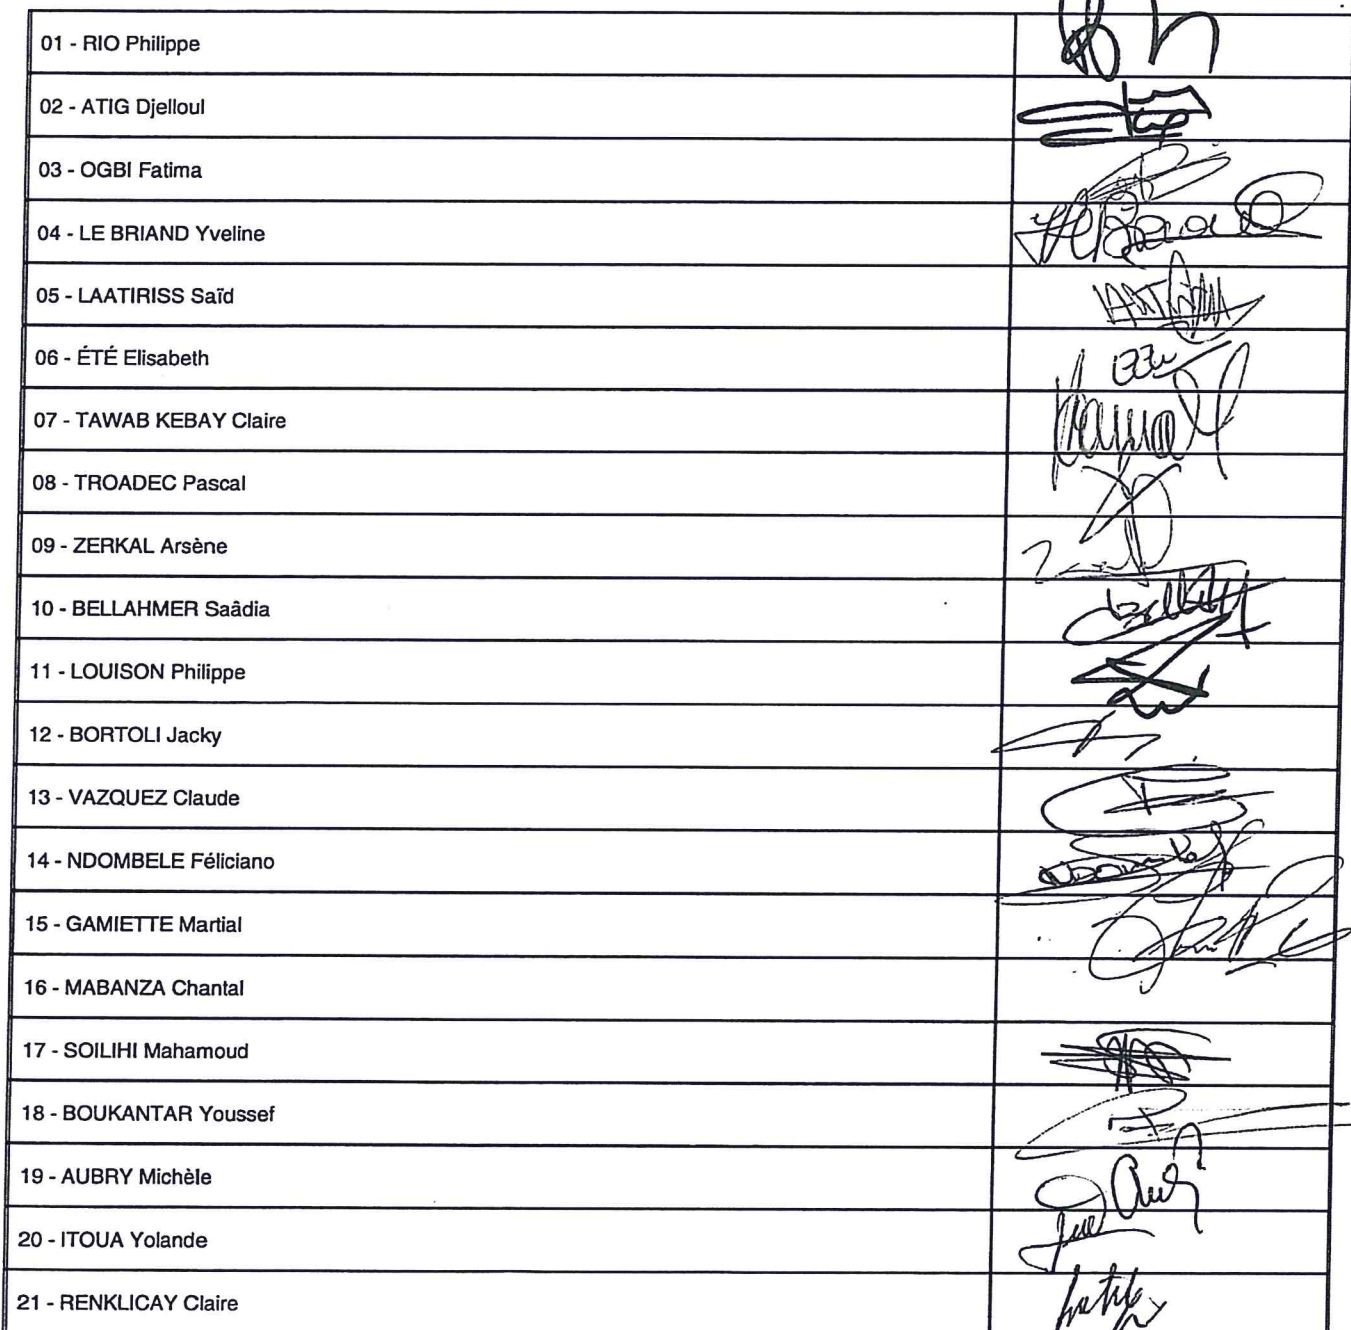 01 - RIO Philippe
02 - ATIG Djelloul
03 - OGBI Fatima
04 - LE BRIAND Yveline
05 - LAATIRISS Saïd
06 - ÉTÉ Elisabeth
07 - TAWAB KEBAY Claire
08 - TROADEC Pascal
09 - ZERKAL Arsène
10 - BELLAHMER Saâdia
11 - LOUISON Philippe
12 - BORTOLI Jacky
13 - VAZQUEZ Claude
14 - NDOMBELE Féliciano
15 - GAMIETTE Martial
16 - MABANZA Chantal
17 - SOILIHI Mahamoud
18 - BOUKANTAR Youssef
19 - AUBRY Michèle
20 - ITOUA Yolande
21 - RENKLICAY Claire